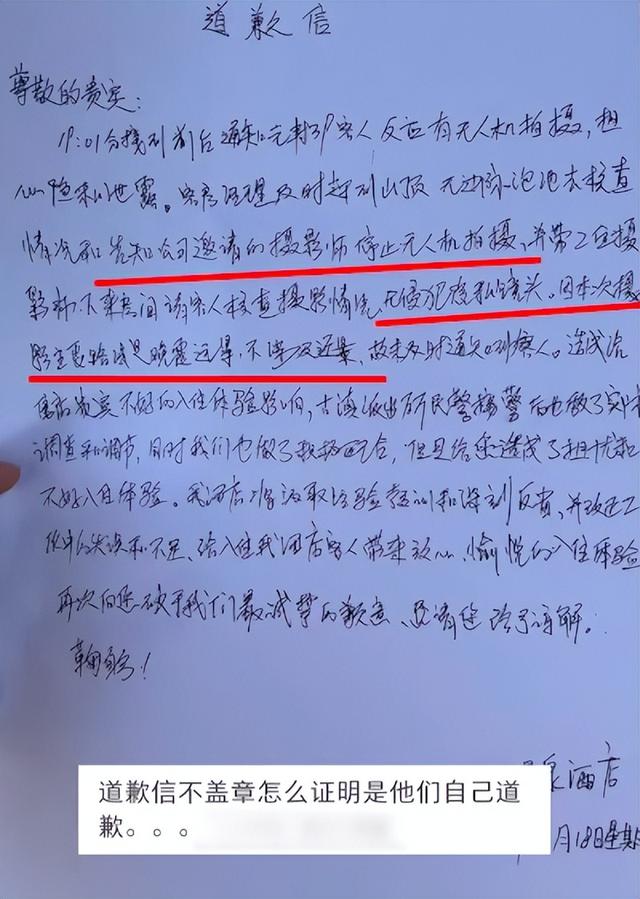 道歉信
尊敬的贵宾:
19:01分接到前台通知元利引客人反应有无人机拍摄,担
心隐私泄露。客房经理及时赶到山顶无边泳泡池去核查
情况和告知公司邀请的摄影师停止无人机拍摄,并带2位摄
影师下来房间请客人核查摄影情况,无侵犯隐私镜头。因本次摄
影主要拍摄是晚霞远景,不涉及近景,故未及时通知到客人。造成给
贵宾不好的入住体验影响,古滇派出所民警接警后也做了实
调查和调节,同时我们也做了积极配合,但是给您造成了担忧和
不好入住体验。我酒店将汲取经验教训和深刻反省,并改进工
作中的失误和不足,给入住我酒店客人带来放心、愉悦的入住体验
再次向您破于我们最诚挚的歉意、恳请您给予谅解。
鞠躬!
泉酒店
月18日星期
道歉信不盖章怎么证明是他们自己道
歉。。。